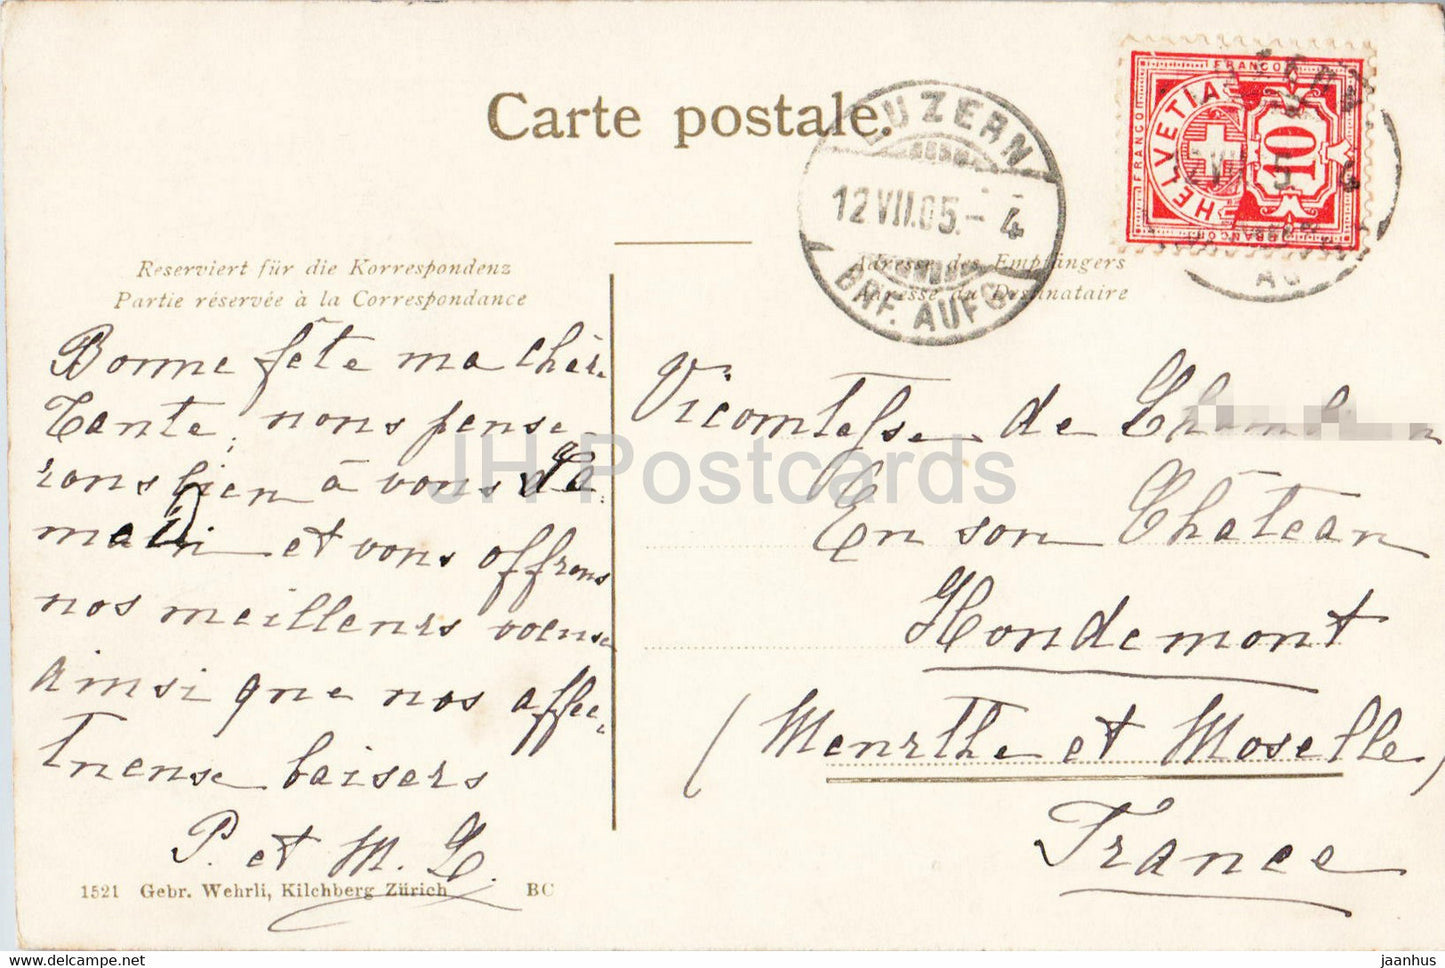 Carte postale.
LUZERN
12 VII.05.- 4
BRF. AUFG.
FRANCO
HELVETIA
FRANCO
10
FRANCO
Reserviert für die Korrespondenz
Partie réservée à la Correspondance
Adresse des Empfängers
Adresse du Destinataire
Bonne fête ma chère
Tante, nous pense-
rons bien à vous de
main et vous offrons
nos meilleurs voeux
ainsi que nos affec-
tueuse baisers
P. et M. L.
Vicomtesse de
En son Château
Houdemont
(Meurthe et Moselle)
France
1521 Gebr. Wehrli, Kilchberg Zürich BC
JH Postcards
jaanhus — www.delcampe.net